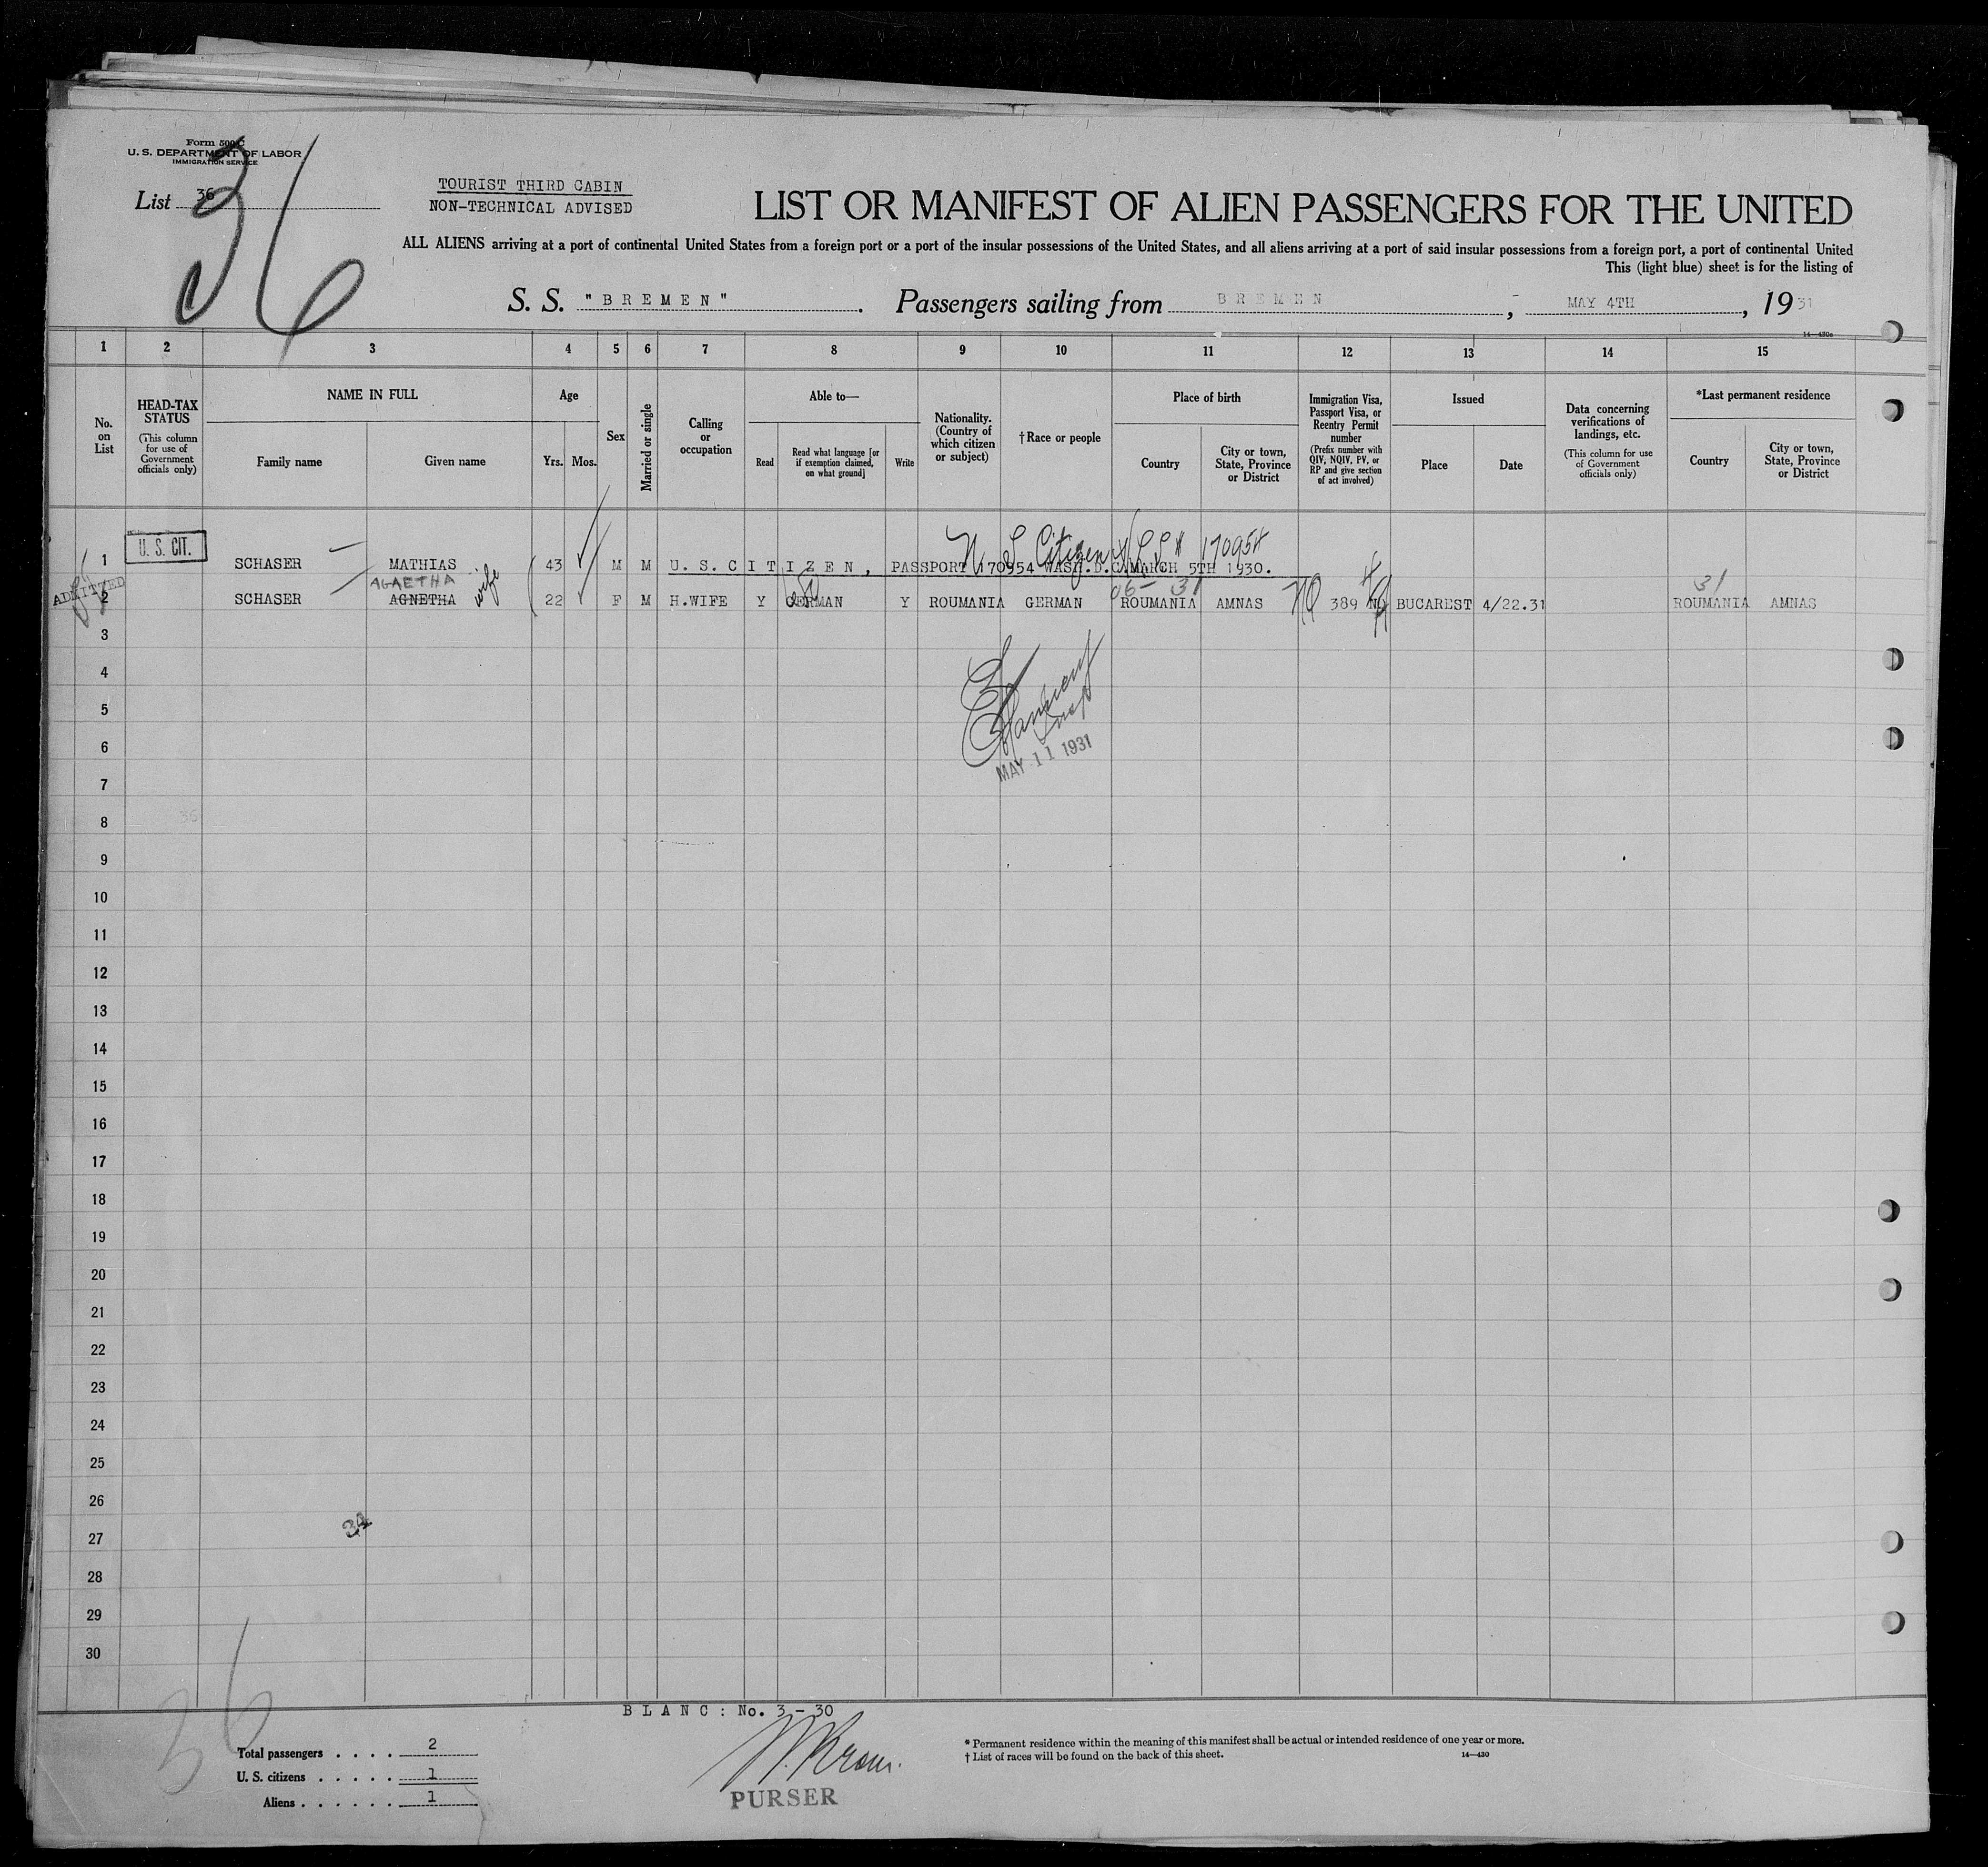 Form 500 C
U. S. DEPARTMENT OF LABOR
IMMIGRATION SERVICE
List 36
36
TOURIST THIRD CABIN
NON-TECHNICAL ADVISED
LIST OR MANIFEST OF ALIEN PASSENGERS FOR THE UNITED
ALL ALIENS arriving at a port of continental United States from a foreign port or a port of the insular possessions of the United States, and all aliens arriving at a port of said insular possessions from a foreign port, a port of continental United
This (light blue) sheet is for the listing of
S. S. "BREMEN". Passengers sailing from BREMEN, MAY 4TH, 1931
14—430a
1 2 3 4 5 6 7 8 9 10 11 12 13 14 15
No. on List
HEAD-TAX STATUS
(This column for use of Government officials only)
NAME IN FULL
Family name
Given name
Age
Yrs.
Mos.
Sex
Married or single
Calling or occupation
Able to—
Read
Read what language [or if exemption claimed, on what ground]
Write
Nationality. (Country of which citizen or subject)
†Race or people
Place of birth
Country
City or town, State, Province or District
Immigration Visa, Passport Visa, or Reentry Permit number
(Prefix number with QIV, NQIV, PV, or RP and give section of act involved)
Issued
Place
Date
Data concerning verifications of landings, etc.
(This column for use of Government officials only)
*Last permanent residence
Country
City or town, State, Province or District
U. S. CIT.
U S Citizen 170954
1 SCHASER MATHIAS 43 M M U.S.CITIZEN, PASSPORT 170954 WASH.D.C.MARCH 5TH 1930.
AGAETHA wife
06- 31
31
ADMITTED
2 SCHASER AGNETHA 22 F M H.WIFE Y GERMAN Y ROUMANIA GERMAN ROUMANIA AMNAS NQ 389 BUCAREST 4/22.31 ROUMANIA AMNAS
3
4
5
6
MAY 11 1931
7
8
36
9
10
11
12
13
14
15
16
17
18
19
20
21
22
23
24
25
26
27
34
28
29
30
36
BLANC: No. 3 - 30
Total passengers . . . . 2
U. S. citizens . . . . . 1
Aliens . . . . . . 1
PURSER
* Permanent residence within the meaning of this manifest shall be actual or intended residence of one year or more.
† List of races will be found on the back of this sheet.
14—430